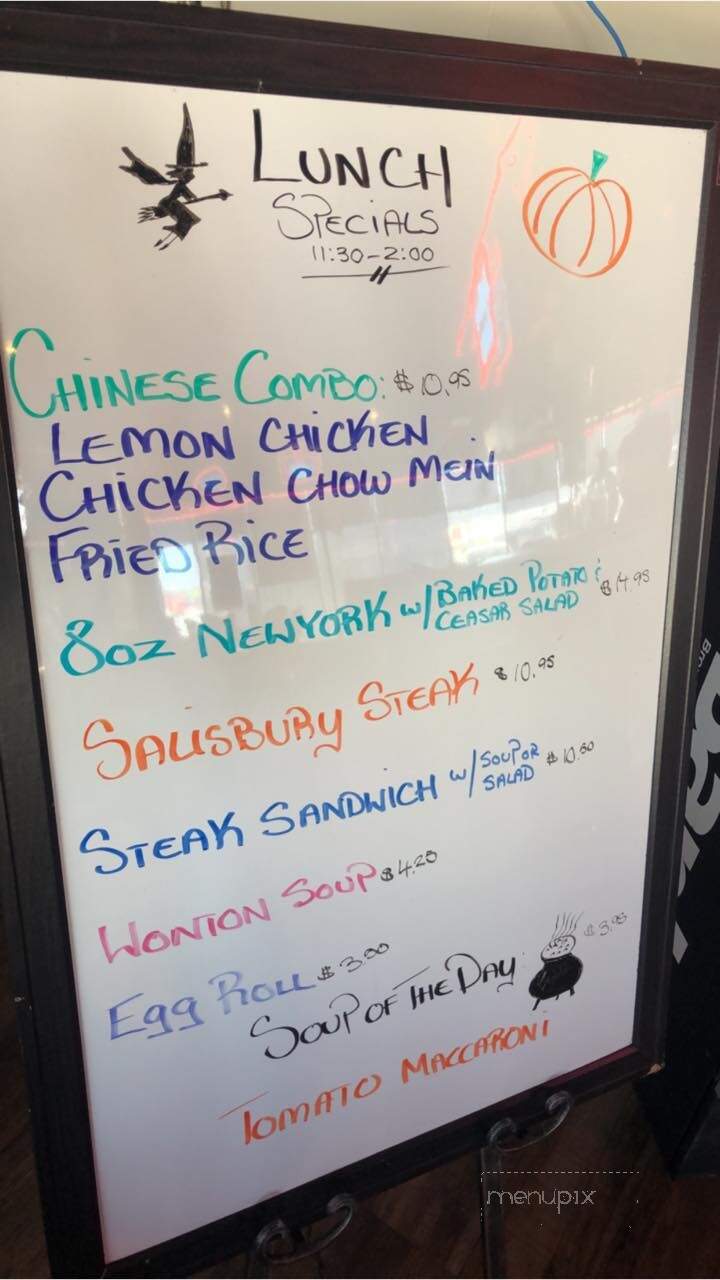 LUNCH
SPECIALS
11:30-2:00
CHINESE COMBO: $10.95
LEMON CHICKEN
CHICKEN CHOW MEIN
FRIED RICE
8OZ NEWYORK w/ BAKED POTATO & $14.95
CEASAR SALAD
SALISBURY STEAK $10.95
STEAK SANDWICH w/ SOUP OR $10.50
SALAD
WONTON SOUP $4.25
EGG ROLL $3.00
SOUP OF THE DAY: $3.95
TOMATO MACCARONI
menupix